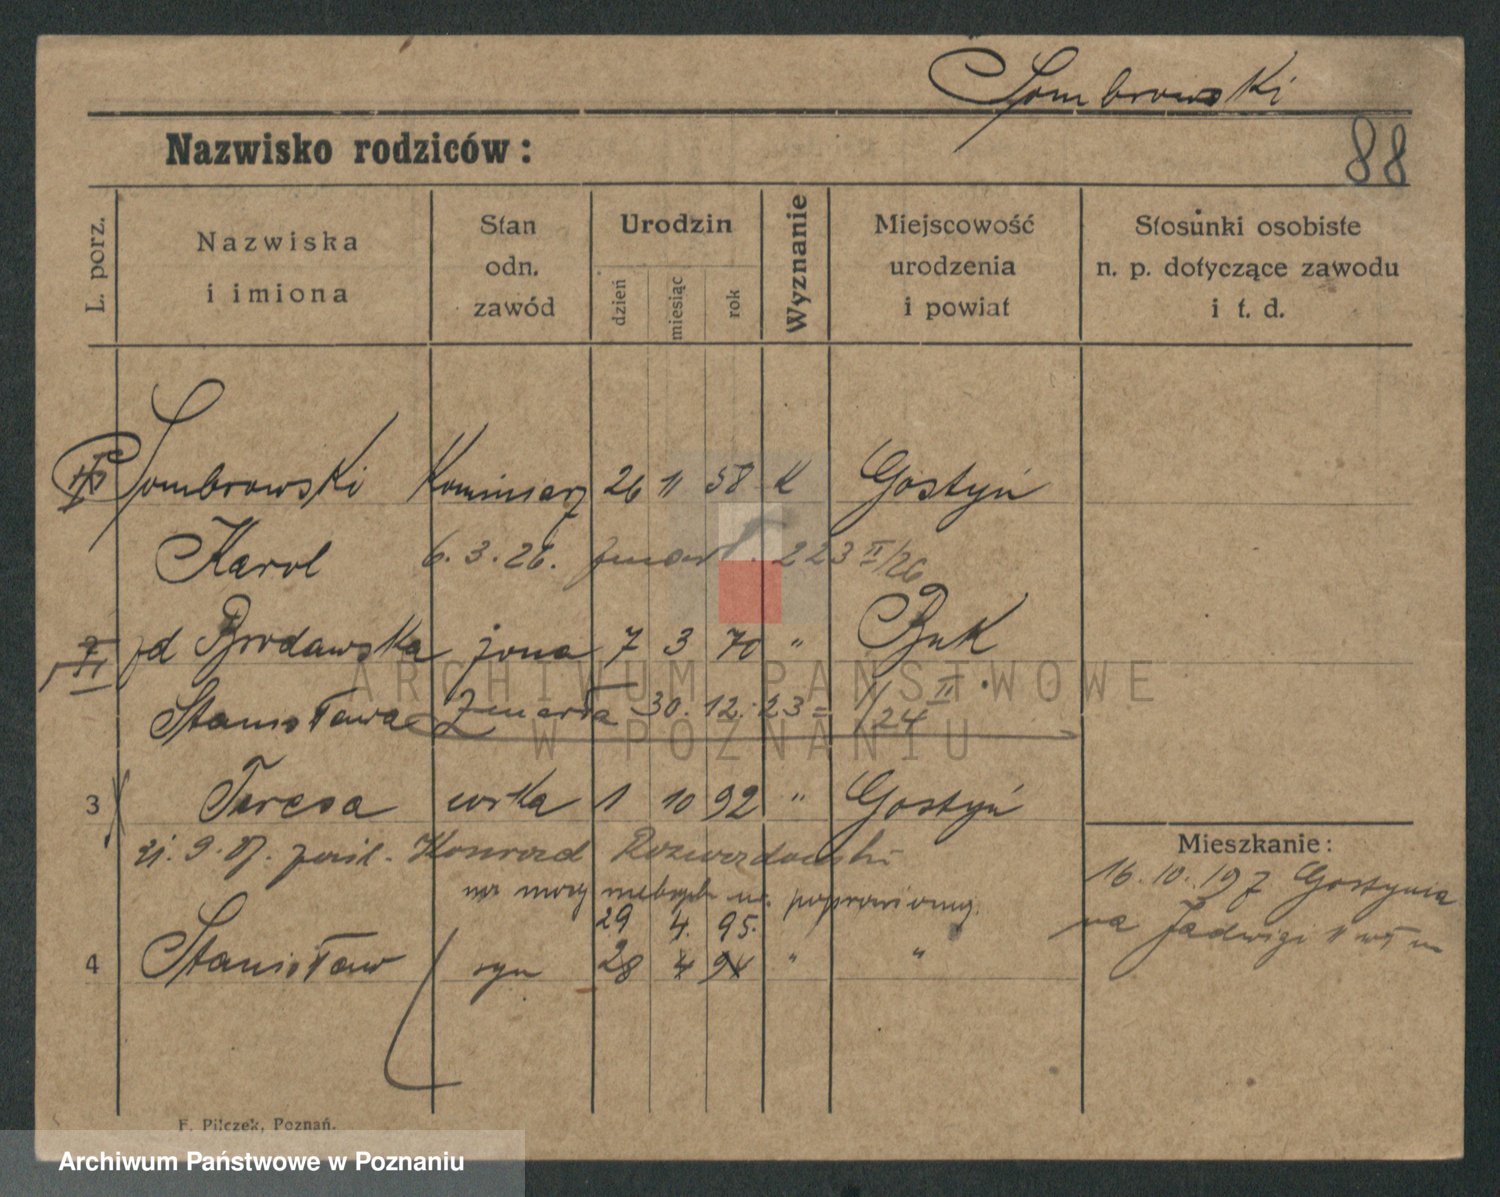 Dombrowski
88
Nazwisko rodziców:
L. porz.
Nazwiska
i imiona
Stan
odn.
zawód
Urodzin
dzień
miesiąc
rok
Wyznanie
Miejscowość
urodzenia
i powiat
Stosunki osobiste
n. p. dotyczące zawodu
i t. d.
Dombrowski Kominiarz 26 11 58 K Gostyń
Karol 6. 3. 26. zmarł. 223 II/26
zd Brodawska żona 7 3 70 " Buk
Stanisława Zmarła 30. 12. 23 = 1/24 II
3 Teresa córka 1 10 92 " Gostyń
21. 9. 07. Konrad
na mocy poprawiony.
29 4. 95.
4 Stanisław syn 28 4 94 " "
Mieszkanie:
16. 10. 197 Gostynia
na Jadwigi 11
F. Pilczek, Poznań.
ARCHIWUM PAŃSTWOWE
W POZNANIU
Archiwum Państwowe w Poznaniu